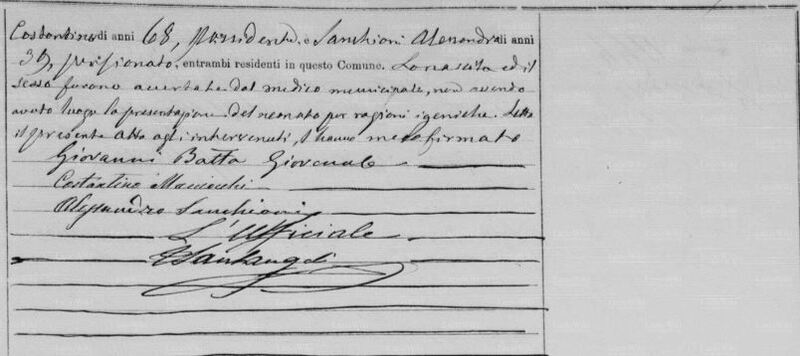 Costantino di anni 68, possidente, e Sanchioni Alessandro di anni
35, pensionato, entrambi residenti in questo Comune. La nascita ed il
sesso furono accertate dal medico municipale, non avendo
avuto luogo la presentazione del neonato per ragioni igieniche. Letto
il presente atto agli intervenuti, l'hanno meco firmato
Giovanni Batta Giovenale
Costantino
Alessandro Sanchioni
L'Ufficiale